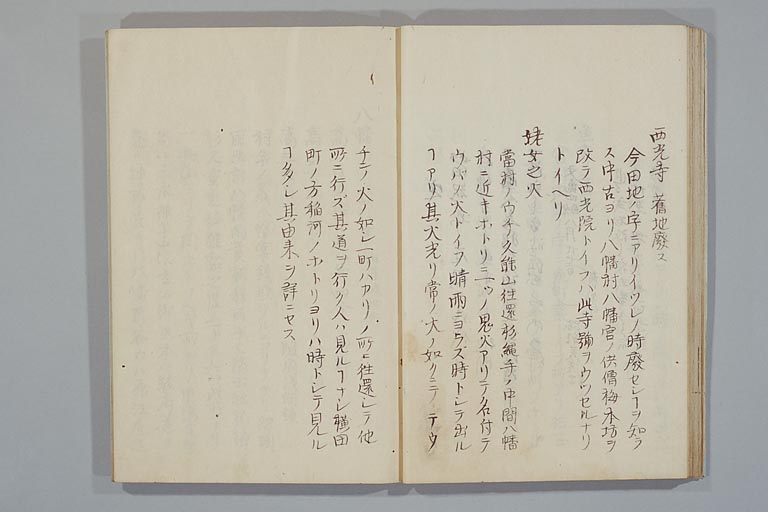 西光寺 舊地廢ス
今田地ノ字ニアリイツレノ時廢セシヿヲ知ラ
ス中古ヨリ八幡村八幡宮ノ供僧梅本坊ヲ
改テ西光院トイフハ此寺號ヲウツセルナリ
トイヘリ
姥女之火
當村ノウチ久能山往還杉繩手ノ中間八幡
村ニ近キホトリニ一ツノ鬼火アリテ名付テ
ウバノ火トイフ晴雨ニヨラズ時トシテ出ル
ヿアリ其火光リ常ノ火ノ如クニテウ
チンノ火ノ如シ一町ハカリノ所ニ往還シテ他
所ニ行ズ其道ヲ行ク人ハ見ルヿナシ横田
町ノ方稲河ノホトリヨリハ時トシテ見ル
ヿ多シ其由来ヲ詳ニセス